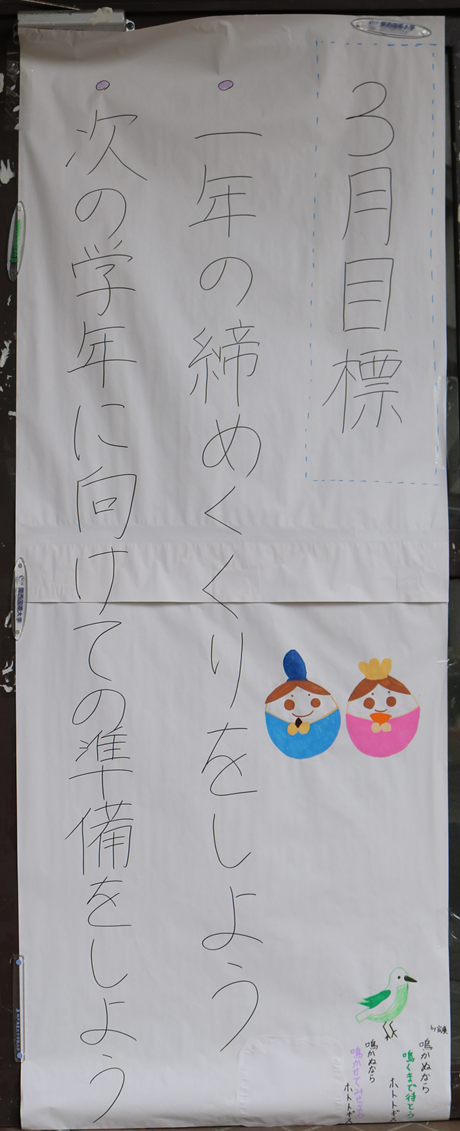 3月目標
一年の締めくくりをしよう
次の学年に向けての準備をしよう
鳴かぬなら
鳴くまで待とう
ホトトギス
鳴かぬなら
鳴かせてみせよう
ホトトギス